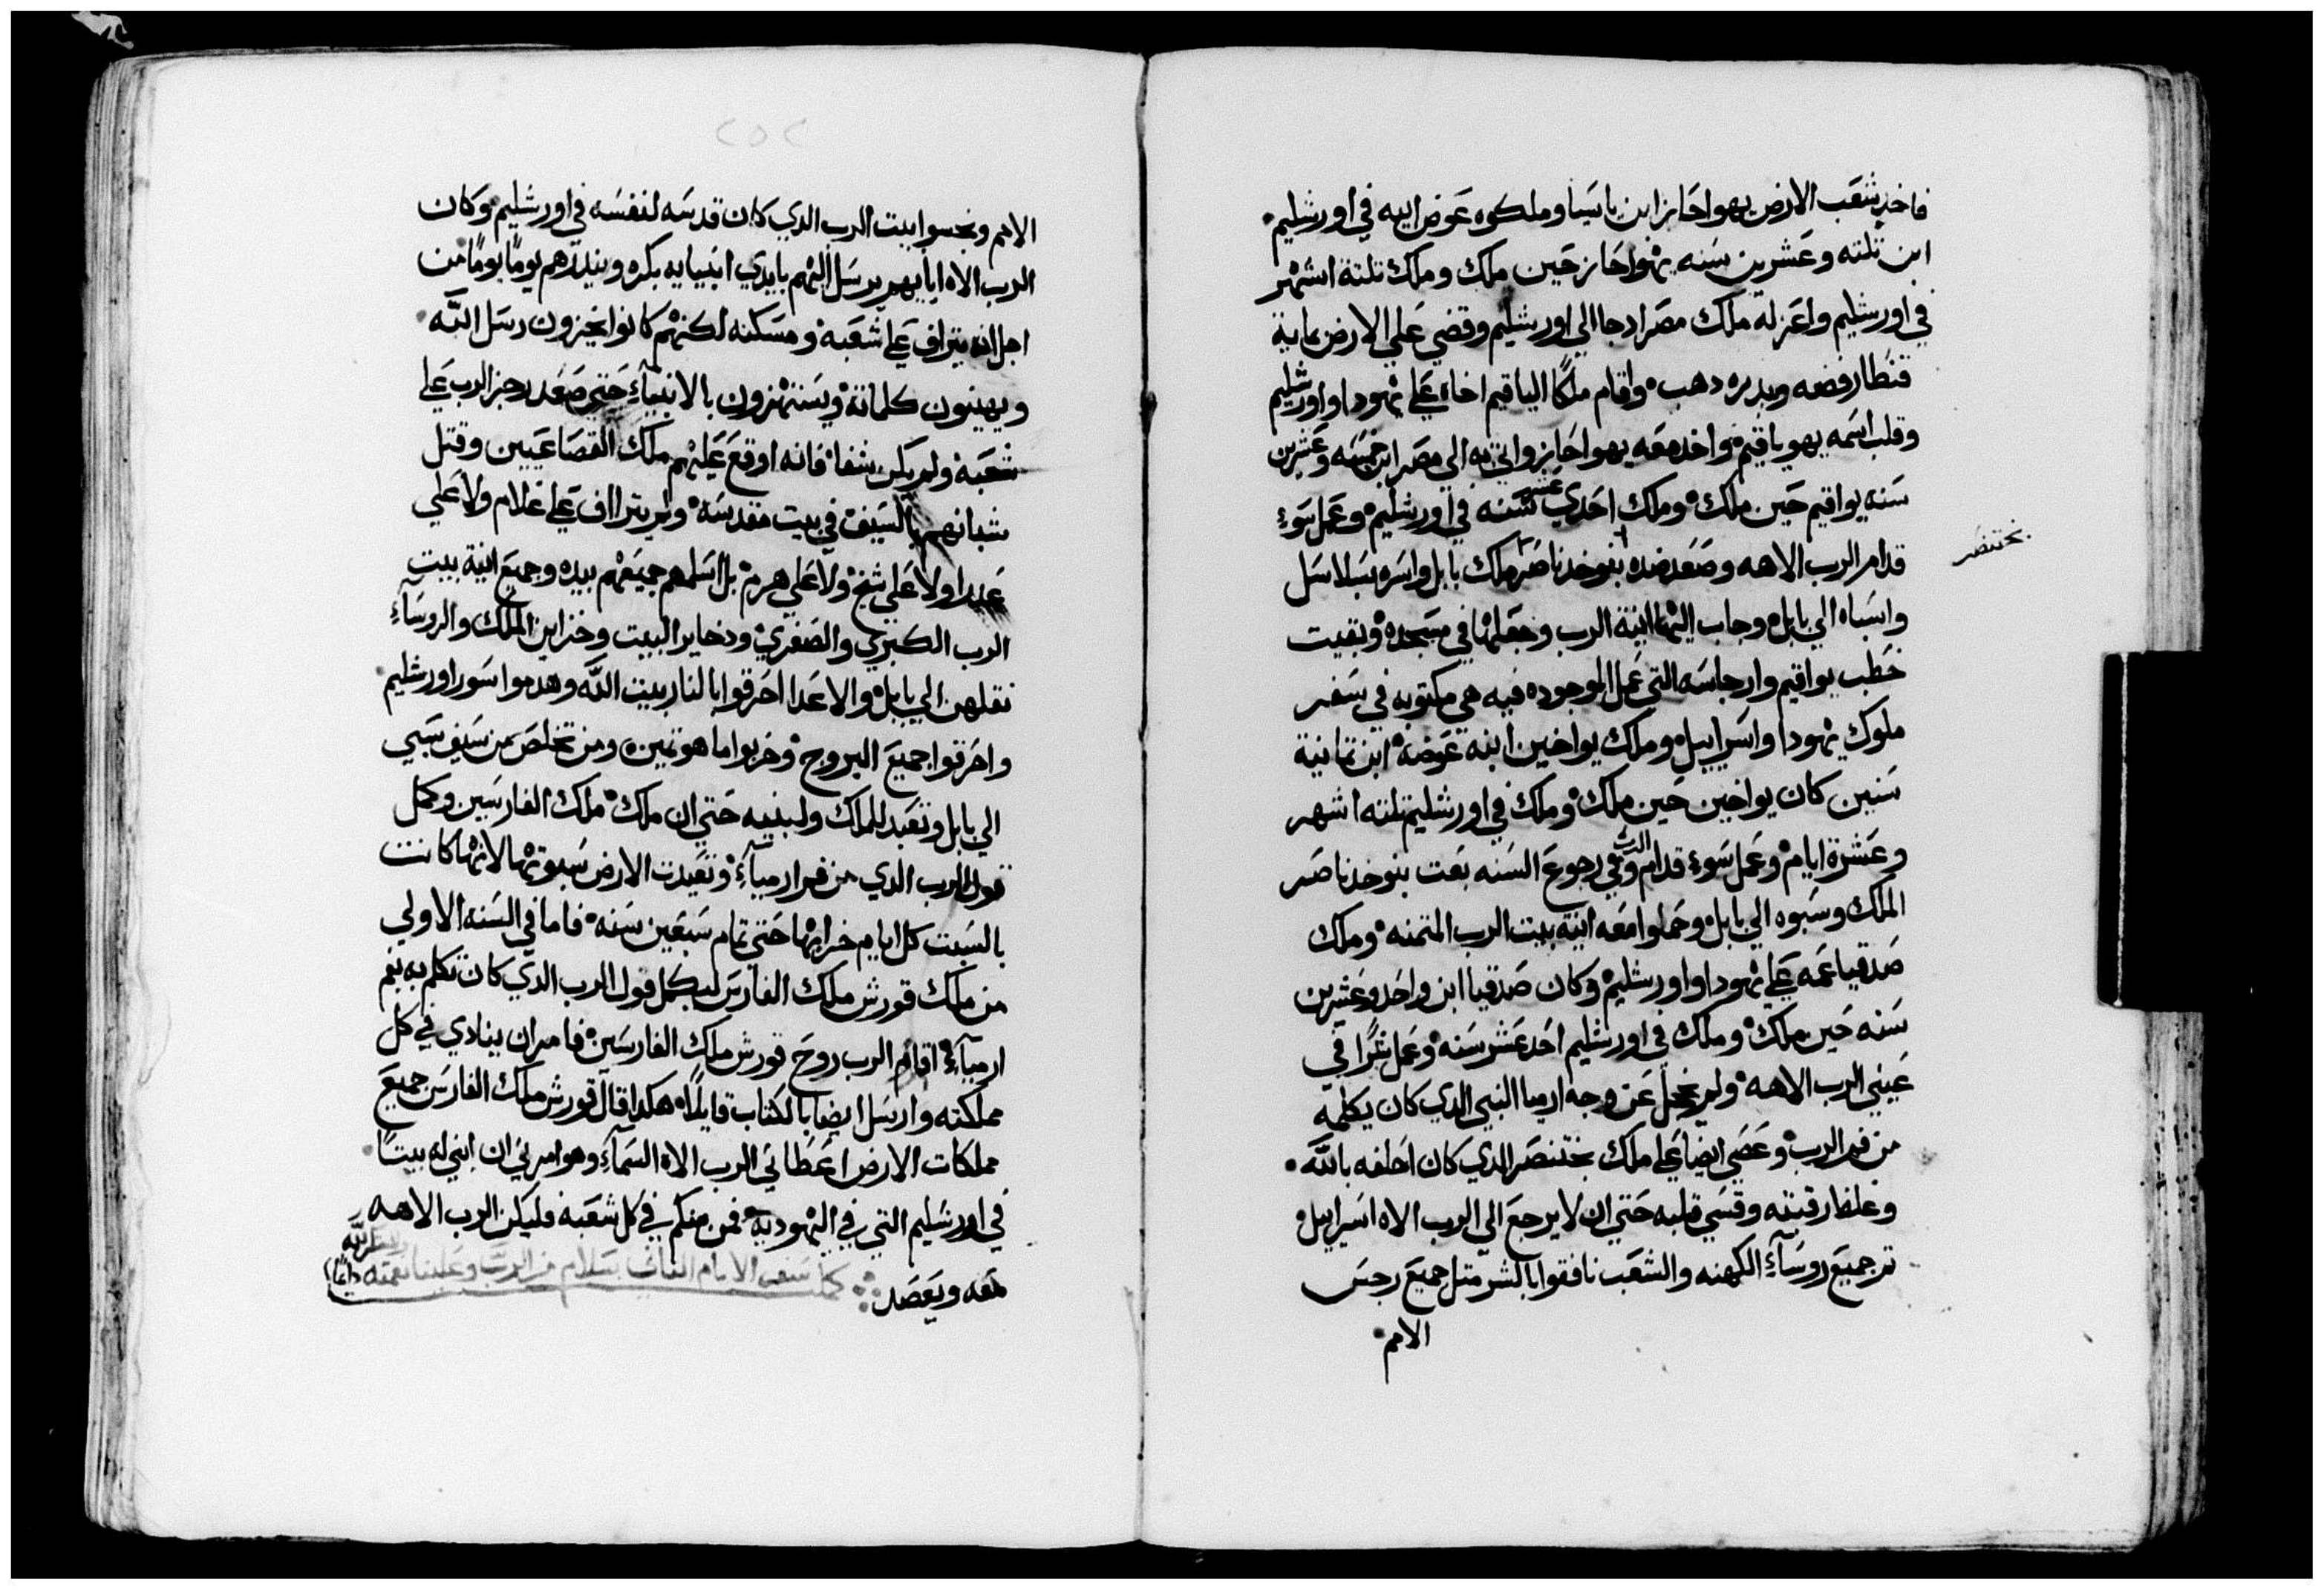 فاخد شعَب الارض يهواحَاز ابن ياسَيا وملكوه عَوض ابيه في اورشليم
ابن تلته وعَشرين سَنه يهواحَاز حَين ملك وملك تلتة اشهر
في اورشليم واعَزله ملك مصَر ادجا الي اورشليم وقضي عَلي الارض بماية
قنطار فضه وبدره دهب واقام ملكًا الياقيم اخاه عَلي يهودا واورشليم
وقلب اسَمه يهوياقيم واخد معَه يهواحَاز واتي به الي مصَر ابن خمسَه وعَشرين
سَنه يواقيم حَين ملك وملك احَدي عَشر سَنه في اورشليم وعَمل سَوءِ
قدام الرب الاهه وصَعَد ضده بنوخدناصَر ملك بابل واسَره بسَلاسَل
بختنصر
واسَباه الي بابل وجاب اليَها انية الرب وجعَلها في مسَجده وبقيت
خطب يواقيم وارجاسَه التي عَمل الموجوده فيه هي مكتوبه في سَفر
ملوك يهودا واسَراييل وملك يواخين ابنه عَوضه ابن تمانية
سَنين كان يواخين حَين ملك وملك في اورشليم تلته اشهر
وعَشرة ايام وعَمل سَوء قدام الرب وفي رجوع السَنه بعَت بنوخدناصَر
الملك وسَبوه الي بابل وحَملوا معَه انية بيت الرب المتمنه وملك
صَدقيا عَمه عَلي يهودا واورشليم وكان صَدقيا ابن واحَد وعَشرين
سَنه حَين ملك وملك في اورشليم احَد عَشر سَنه وعَمل شرًا في
عَيني الرب الاهه ولم يخجل عَن وجه ارميا النبي الدي كان يكلمه
من فم الرب وعَصَي ايضا عَلي ملك بختنصَر الدي كان احَلفه بالله
وغلظ رقبته وقسَي قلبه حَتي ان لا يرجعَ الي الرب الاه اسَراييل
تم جميعَ روسَآءِ الكهنه والشعَب نافقوا بالشر متل جميعَ رجسَ
الامم
٢٥٢
الامم ونجسَوا بيت الرب الدي كان قدسَه لنفسَه في اورشليم وكان
الرب الاه ابايهم يرسَل اليهم بايدي انبيايه بكره وينذرهم يومًا يومًا من
اجل انه يتراف عَلي شعَبه ومسَكنه لكنهم كانوا يخزون رسَل الله
ويهينون كلماته ويسَتهزون بالانبيآءِ حَتي صَعَد رجز الرب عَلي
شعَبه ولم يكن شفا فانه اوقعَ عَليهم ملك القصَاعَيين وقتل
شبانهم بالسَيف في بيت مقدسَه ولم يترااف عَلي غلام ولا عَلي
عَدرا ولا عَلي شيخ ولا عَلي هرم بل اسَلمهم جميعَهم بيده وجميعَ انية بيت
الرب الكبري والصَغري ودخاير البيت وخزاين الملك والروسَآءِ
نقلهن الي بابل والاعَدا احَرقوا بالنار بيت الله وهدموا سَور اورشليم
واحَرقوا جميعَ البروج وخربوا ما هو تمين ومن تخلصَ من سَيف سَبي
الي بابل وتعَبد للملك ولبنيه حَتي ان ملك ملك الفارسَين وكمل
قول الرب الدي من فم ارميآءِ وتعَيدت الارض سَبوتها لانها كانت
بالسَبت كل ايام خرابها حَتي تمام سَبعَين سَنه فاما في السَنه الاولي
من ملك قورش ملك الفارسَ ليكمل قول الرب الدي كان تكلم به بفم
ارميآءِ اقام الرب روحَ قورش ملك الفارسَين فامر ان ينادي في كل
مملكته وارسَل ايضا بالكتاب قايلًا هكدا قال قورش ملك الفارسَ جميعَ
مملكات الارض اعَطاني الرب الاه السَمآءِ وهو امرني ان ابني له بيتًا
في اورشليم التي في اليهوديه فمن منكم في كل شعَبه فليكن الرب الاهه
معَه ويَصَعَد
كمل سَفر الايام التاني بسَلام من الرب وعَلينا نعمته دايمًا